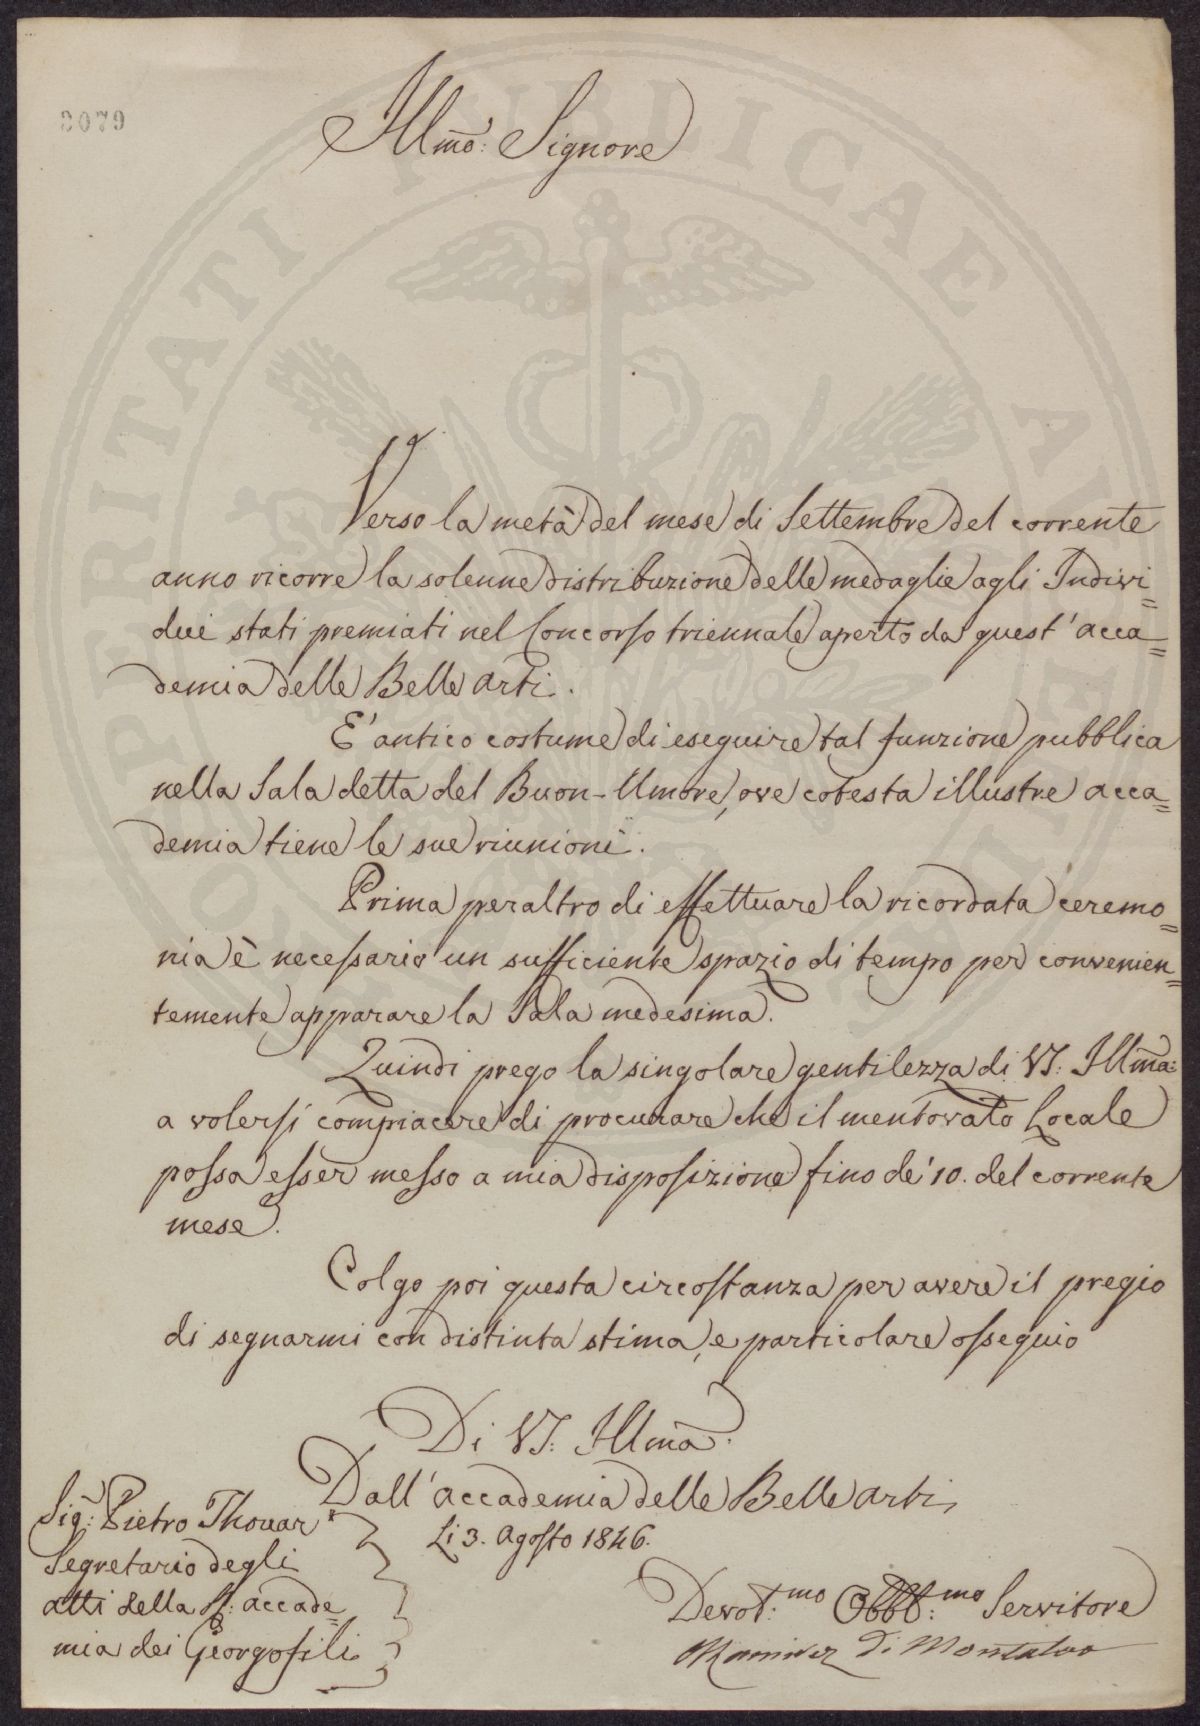 3079
Illmo: Signore
Verso la metà del mese di Settembre del corrente
anno ricorre la solenne distribuzione delle medaglie agli Indivi=
dui stati premiati nel Concorso triennale aperto da quest'acca=
demia delle Belle arti.
E' antico costume di eseguire tal funzione pubblica
nella Sala detta del Buon-Umore, ove cotesta illustre acca=
demia tiene le sue riunioni.
Prima peraltro di effettuare la ricordata ceremo=
nia è necessario un sufficiente spazio di tempo per convenien=
temente apparare la Sala medesima.
Quindi prego la singolare gentilezza di VS: Illma:
a volersi compiacere di procurare che il mentovato Locale
possa esser messo a mia disposizione fino de' 10. del corrente
mese.
Colgo poi questa circostanza per avere il pregio
di segnarmi con distinta stima, e particolare ossequio
Di VS: Illma.
Dall'accademia delle Belle arti
Li 3. Agosto 1846.
Sig: Pietro Thouar
Segretario degli
atti della R: accade=
mia dei Georgofili
Devot:mo Obbl:mo Servitore
Ramirez Di Montalvo
PROSPERITATI PUBLICAE AUGENDAE